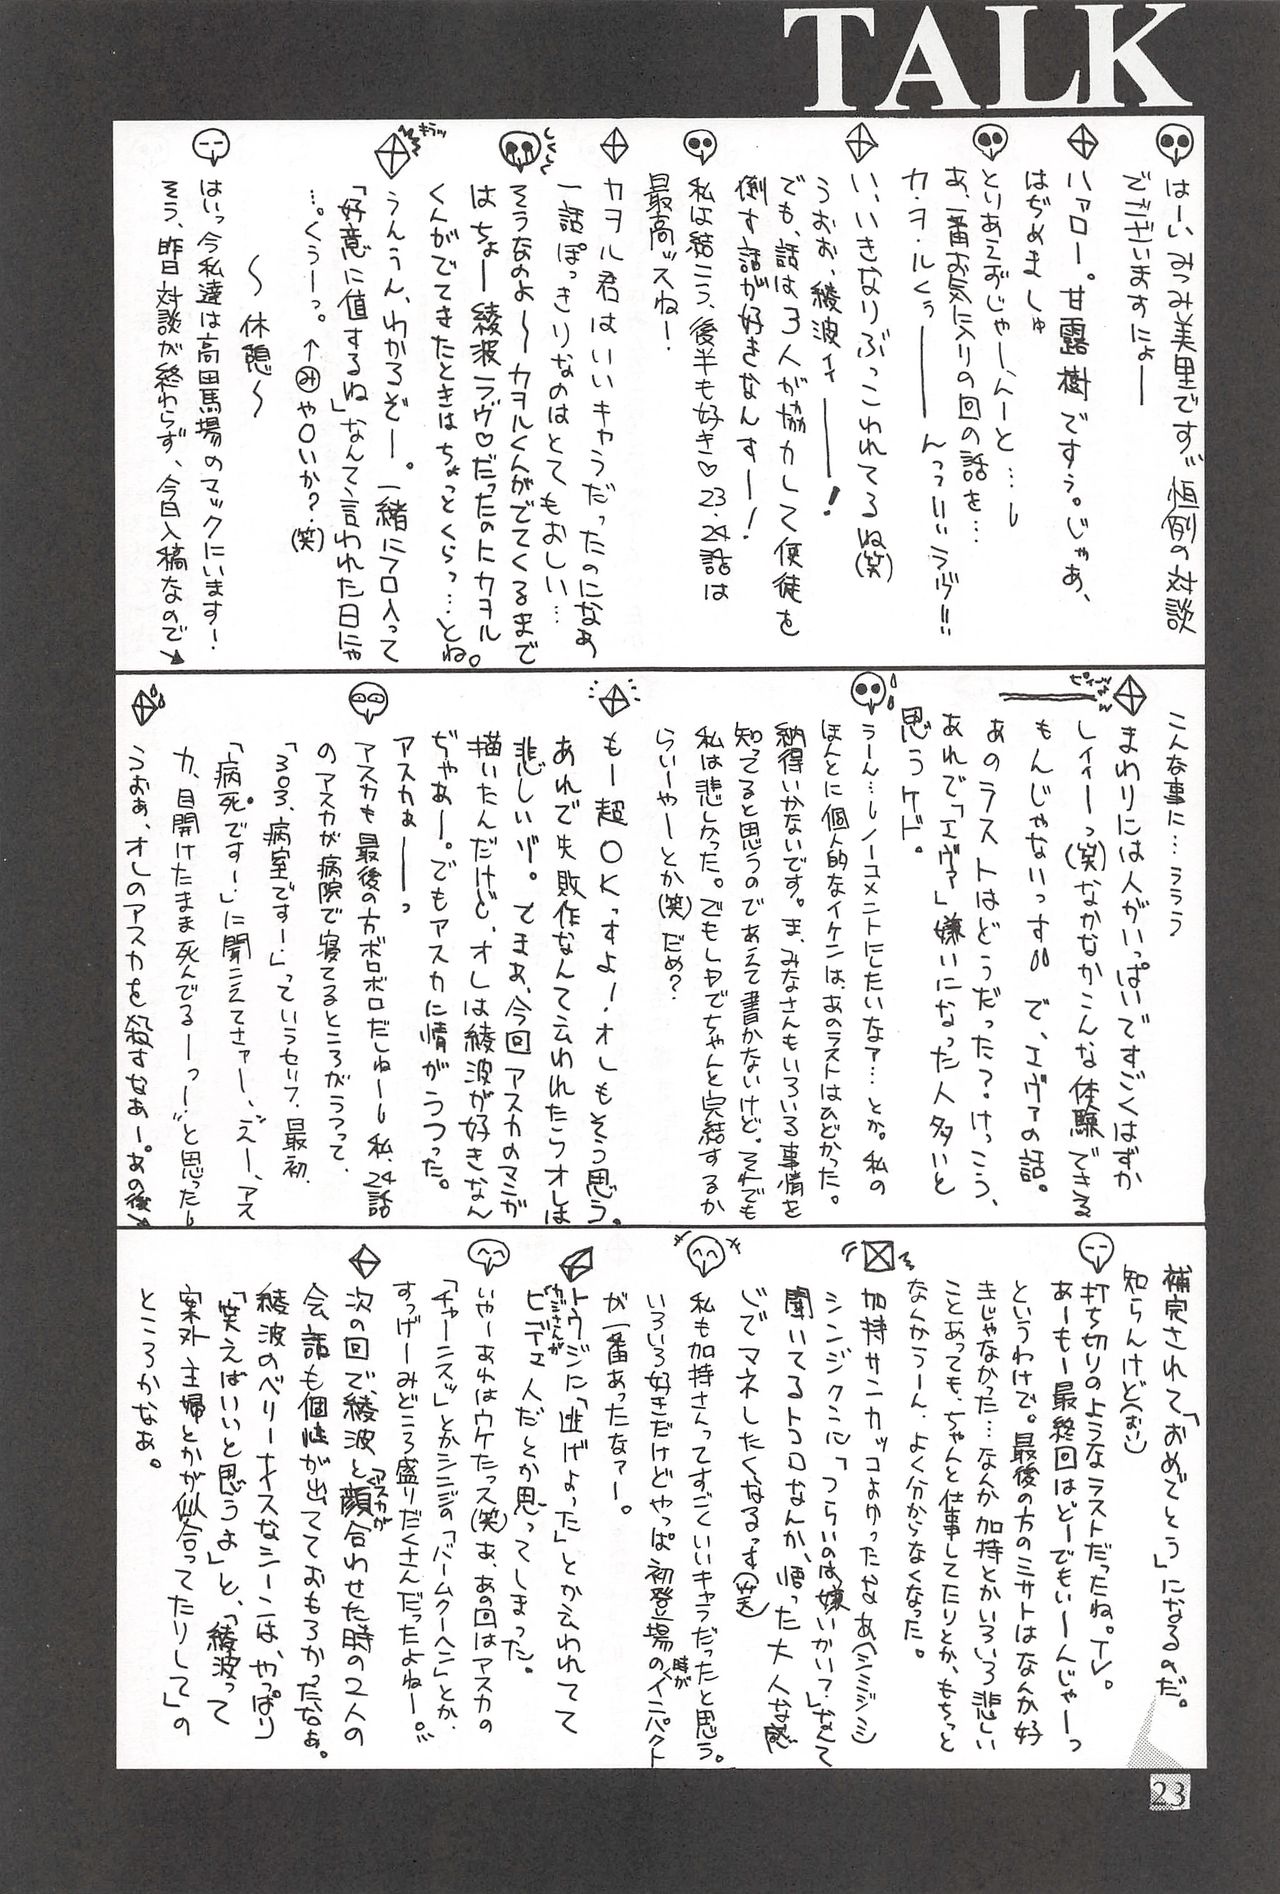 TALK
はーいみつみ美里です〃恒例の対談
でございますにょー
ハァロー。甘露樹ですぅ。じゃあ、
はぢめましゅ
とりあえずじゃー、んーと…。
あ、一番お気に入りの回の話を…
カ・ヲ・ルくぅーーーんっっ!!!ラヴ!!
い、いきなりぶっこわれてるね(笑)
うおぉ、綾波ィィーーー!
でも、話は3人が協力して使徒を
倒す話が好きなんすー!
私は結こう、後半も好き♡23.24話は
最高ッスね!
カヲル君はいいキャラだったのになぁ
一話ぽっきりなのはとてもおしい…
そうなのよ〜カヲルくんがでてくるまで
はちょー綾波ラヴ♡だったのにカヲル
くんがでてきたときはちょっとくらっ…とね。
うんうん、わかるぞー。一緒にフロ入って
「好意に値するね」なんて言われた日にゃ
…。くぅーっ。↑みや○いか?(笑)
〜休憩〜
はいっ今私達は高田馬場のマックにいます!
そう、昨日対談が終わらず、今日入稿なので
こんな事に…ううう
まわりには人がいっぱいですごくはずか
しィィーっ(笑)なかなかこんな体験できる
もんじゃないっす。で、エヴァの話。
あのラストはどうだった?けっこう、
あれで「エヴァ」嫌いになった人多いと
思うケド。
うーん…ノーコメントにしたいなァ…とか。私の
ほんとに個人的なイケンは、あのラストはひどかった。
納得いかないです。ま、みなさんもいろいる事情を
知ってると思うのであえて書かないけど。それでも
私は悲しかった。でもLDでちゃんと完結するか
らいーやーとか(笑)だめ?
もー超OKっすよ!オレもそう思う。
あれで失敗作なんて云われたらオレは
悲しいゾ。でまあ、今回アスカのマンガ
描いたんだけど、オレは綾波が好きなん
ぢゃあー。でもアスカに情がうつった。
アスカぁーーっ
アスカも最後の方ボロボロだしねー私、24話
のアスカが病院で寝てるところがうつって、
「303、病室ですー」っていうセリフ、最初、
「病死ですー」に聞こえてさァー、えー、アス
カ、目開けたまま死んでるーっ…と思った
うおぉ、オレのアスカを殺すなぁー。あの後
補完されて「おめでとう」になるのだ。
知らんけど(おい)
打ち切りのようなラストだったね。TV。
あーもー最終回はどーでもいーんじゃーっ
というわけで。最後の方のミサトはなんか好
きじゃなかった…なんか加持とかいろいろ悲しい
ことあっても、ちゃんと仕事してたりとか、もちっと
なんかうーん、よく分からなくなった。
加持サンカッコよかったなぁ(シミジミ)
シンジクンに「つらいのは嫌いかい?」なんて
聞いてるトコロなんか、悟った大人な感
じでマネしたくなるっす(笑)
私も加持さんってすごくいいキャラだったと思う。
いろいろ好きだけどやっぱ初登場の時がインパクト
が一番あったなァー。
トウジに「逃げよった」とか云われてて
カジさんがビデエ人だとか思ってしまった。
いやーあれはウケたっス(笑)あ、あの回はアスカの
「チャーンスッ」とかシンジの「バームクーヘン」とか、
すっげーみどころ盛りだくさんだったよねー。
次の回で綾波とアスカが顔合わせた時の2人の
会話も個性が出てておもろかったなぁ。
綾波のベリーナイスなシーンは、やっぱり
「笑えばいいと思うよ」と、「綾波って
案外主婦とかが似合ってたりして」の
ところかなぁ。
23